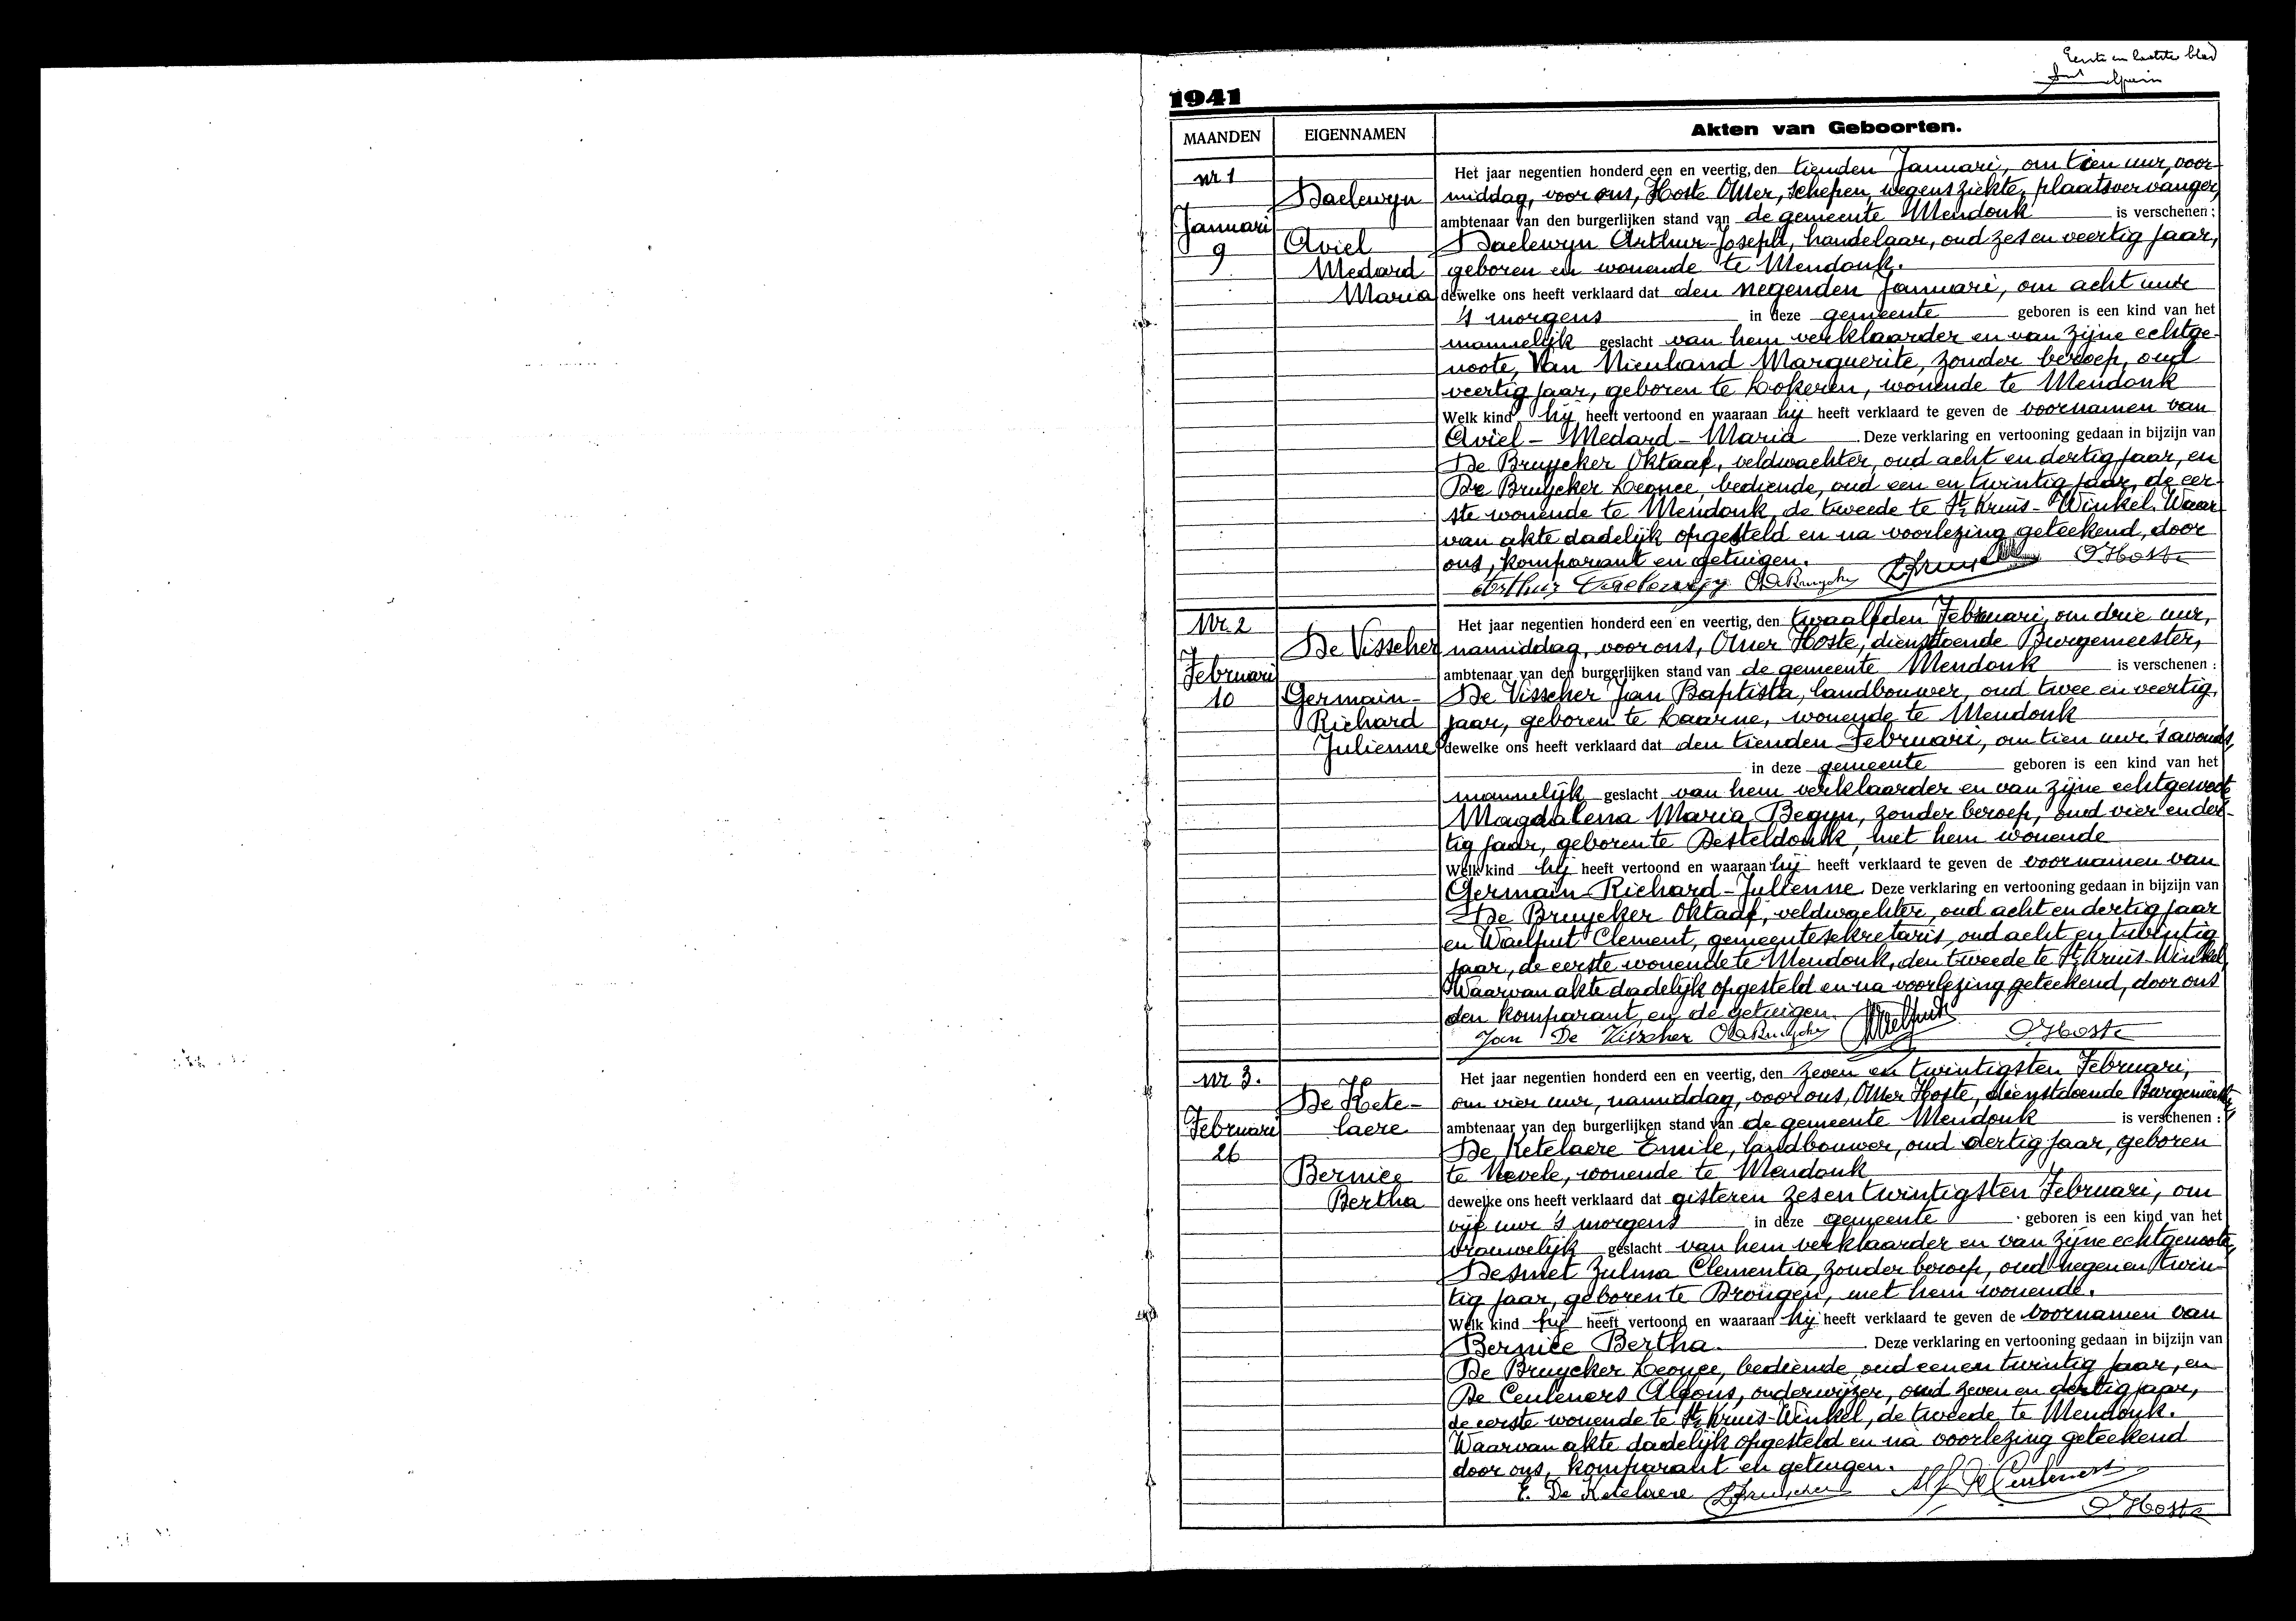 Eerste en laatste blad
1941
MAANDEN EIGENNAMEN Akten van Geboorten.
nr 1
Januari
9
Daelewyn
Aviel
Medard
Maria
Het jaar negentien honderd een en veertig, den tienden Januari, om tien uur, voor-
middag, voor ons, Hoste Omer, schepen, wegens ziekte, plaatsvervanger,
ambtenaar van den burgerlijken stand van de gemeente Mendonk is verschenen :
Daelewyn Arthur-Joseph, handelaar, oud zes en veertig jaar,
geboren en wonende te Mendonk.
dewelke ons heeft verklaard dat den negenden Januari, om acht ure
's morgens in deze gemeente geboren is een kind van het
mannelijk geslacht van hem verklaarder en van zijne echtge-
noote, Van Nieuland Marguerite, zonder beroep, oud
veertig jaar, geboren te Lokeren, wonende te Mendonk
Welk kind hij heeft vertoond en waaraan hij heeft verklaard te geven de voornamen van
Aviel - Medard - Maria Deze verklaring en vertooning gedaan in bijzijn van
De Bruycker Oktaaf, veldwachter, oud acht en dertig jaar, en
De Bruycker Leonce, bediende, oud een en twintig jaar, de eer-
ste wonende te Mendonk, de tweede te St Kruis-Winkel. Waar-
van akte dadelijk opgesteld en na voorlezing geteekend, door
ons, komparant en getuigen.
Arthur Daelewyn O. De Bruycker O Hoste
Nr. 2
Februari
10
De Visscher
Germain-
Richard
Julienne
Het jaar negentien honderd een en veertig, den twaalfden Februari, om drie uur,
namiddag, voor ons, Omer Hoste, dienstdoende Burgemeester,
ambtenaar van den burgerlijken stand van de gemeente Mendonk is verschenen :
De Visscher Jan Baptista, landbouwer, oud twee en veertig,
jaar, geboren te Laarne, wonende te Mendonk
dewelke ons heeft verklaard dat den tienden Februari, om tien ure 's avonds,
in deze gemeente geboren is een kind van het
mannelijk geslacht van hem verklaarder en van zijne echtgenoote
Magdalena Maria Begyn, zonder beroep, oud vier en der-
tig jaar, geboren te Desteldonk, met hem wonende
Welk kind hij heeft vertoond en waaraan hij heeft verklaard te geven de voornamen van
Germain-Richard-Julienne. Deze verklaring en vertooning gedaan in bijzijn van
De Bruycker Oktaaf, veldwachter, oud acht en dertig jaar
en Waelput Clement, gemeentesekretaris, oud acht en twintig
jaar, de eerste wonende te Mendonk, den tweede te St Kruis-Winkel,
Waarvan akte dadelijk opgesteld en na voorlezing geteekend, door ons
den komparant, en de getuigen.
Jan De Visscher O De Bruycker Waelput O Hoste
nr 3.
Februari
26
De Kete-
laere
Bernice
Bertha
Het jaar negentien honderd een en veertig, den zeven en twintigsten Februari,
om vier uur, namiddag, voor ons, Omer Hoste, dienstdoende Burgemeester,
ambtenaar van den burgerlijken stand van de gemeente Mendonk is verschenen :
De Ketelaere Emile, landbouwer, oud dertig jaar, geboren
te Nevele, wonende te Mendonk
dewelke ons heeft verklaard dat gisteren zes en twintigsten Februari, om
vijf ure 's morgens in deze gemeente geboren is een kind van het
vrouwelijk geslacht van hem verklaarder en van zijne echtgenoote,
Desmet Zulma Clementia, zonder beroep, oud negen en twin-
tig jaar, geboren te Drongen, met hem wonende.
Welk kind hij heeft vertoond en waaraan hij heeft verklaard te geven de voornamen van
Bernice Bertha. Deze verklaring en vertooning gedaan in bijzijn van
De Bruycker Leonce, bediende, oud een en twintig jaar, en
De Ceuleners Alfons, onderwijzer, oud zeven en dertig jaar,
de eerste wonende te St Kruis-Winkel, de tweede te Mendonk.
Waarvan akte dadelijk opgesteld en na voorlezing geteekend
door ons, komparant en getuigen.
E. De Ketelaere Alf De Ceuleners
O Hoste